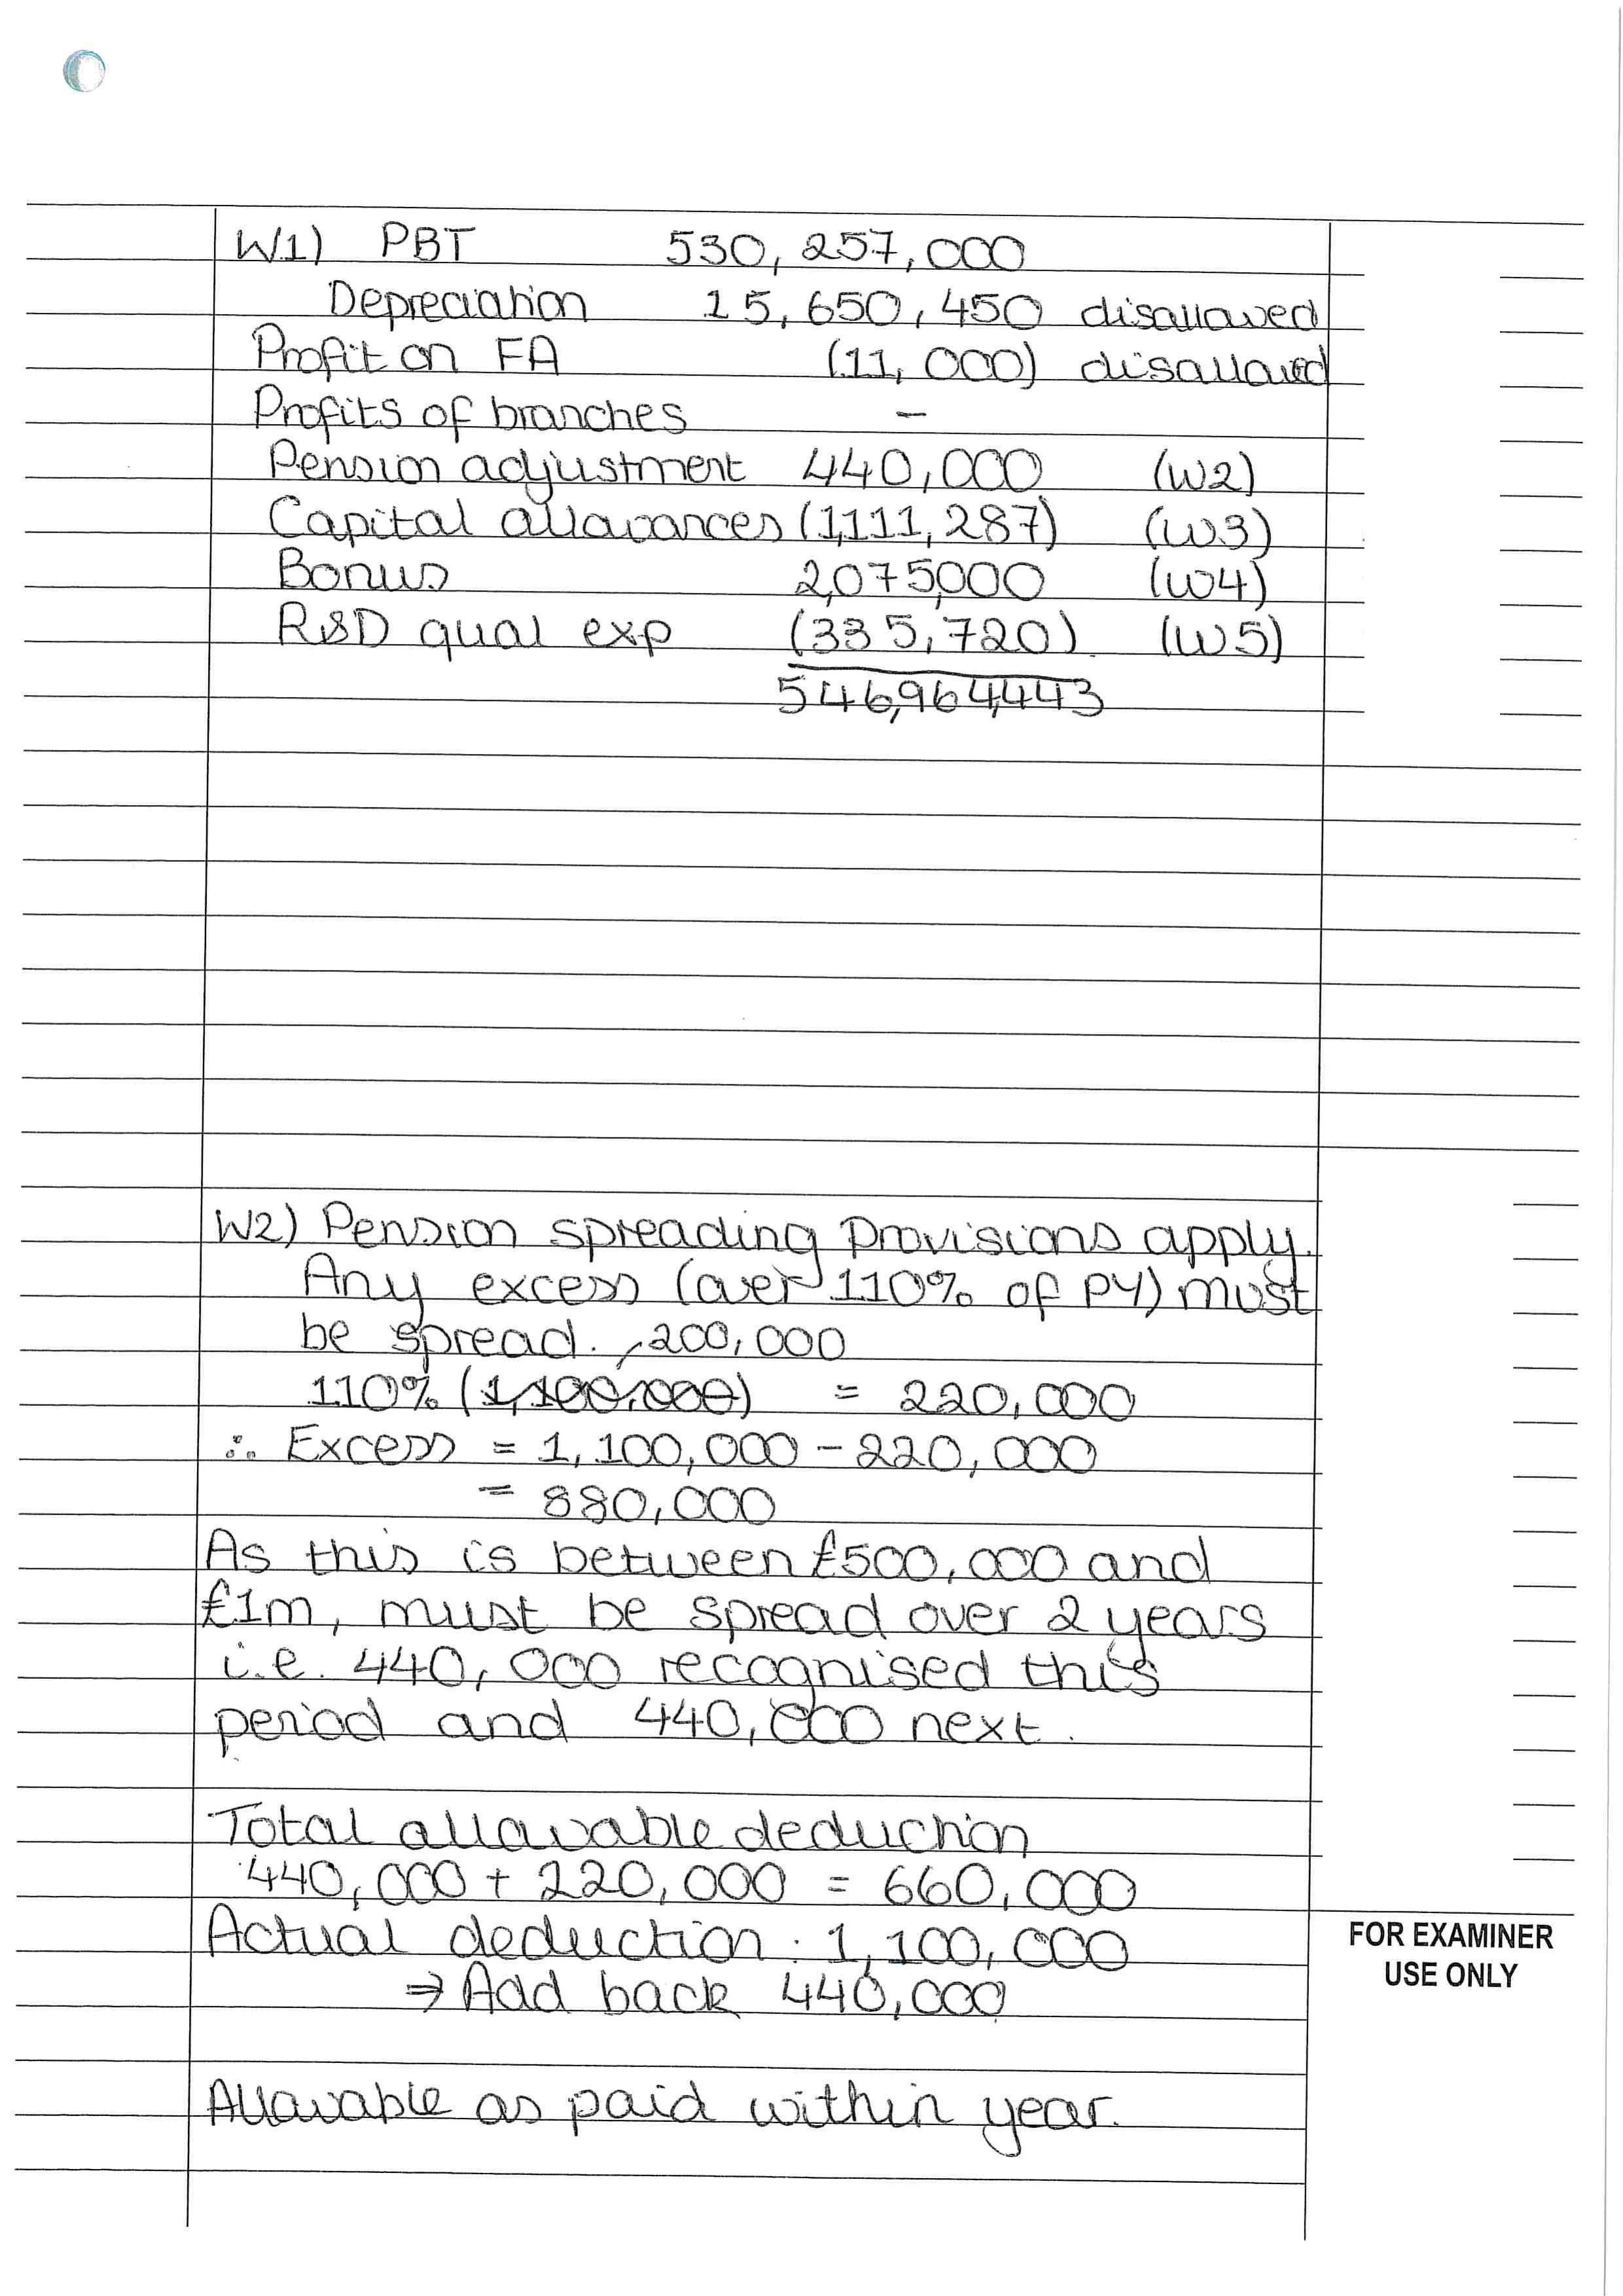 W1) PBT 530,257,000
Depreciation 15,650,450 disallowed
Profit on FA (11,000) disallowed
Profits of branches -
Pension adjustment 440,000 (W2)
Capital allowances (1,111,287) (W3)
Bonus 2,075,000 (W4)
R&D qual exp (335,720) (W5)
546,964,443
W2) Pension spreading provisions apply.
Any excess (over 110% of PY) must
be spread. 200,000
110% (1,100,000) = 220,000
∴ Excess = 1,100,000 - 220,000
= 880,000
As this is between £500,000 and
£1m, must be spread over 2 years
i.e. 440,000 recognised this
period and 440,000 next.
Total allowable deduction
440,000 + 220,000 = 660,000
Actual deduction: 1,100,000
⇒ Add back 440,000
Allowable as paid within year.
FOR EXAMINER
USE ONLY